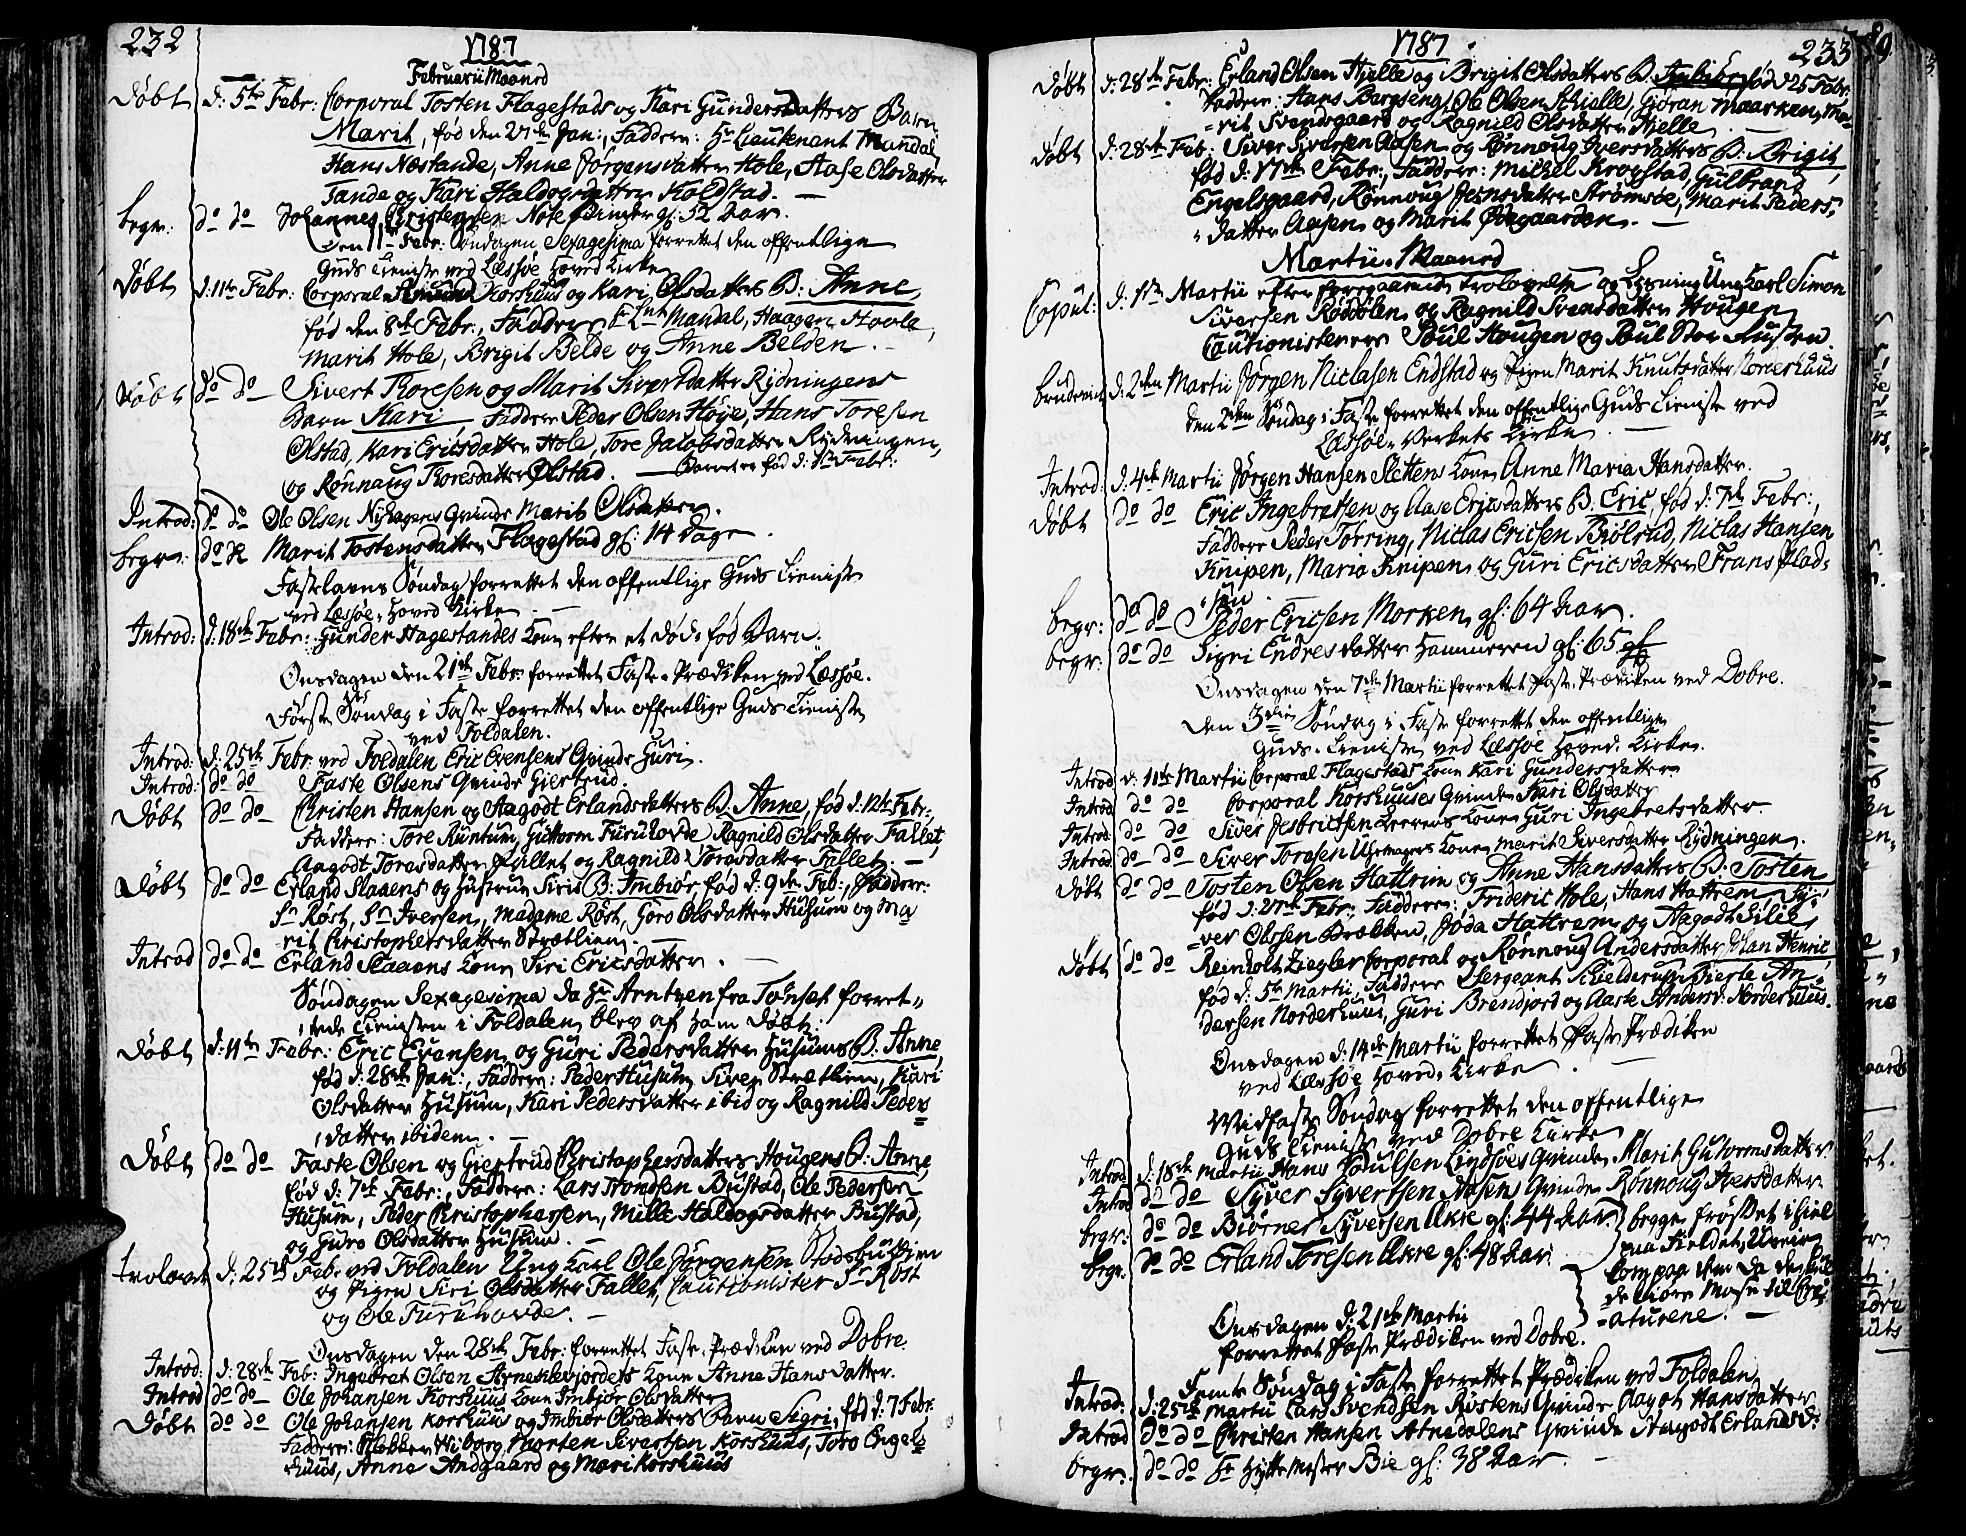 232
1787
Februarii Maaned
Døbt d: 5te Febr: Corporal Tosten Flagestads og Kari Gundersdatters Barn
Marit, fød den 27de Jan:, Faddere: Hr Lieutenant Mandal,
Hans Næstande, Anne Jørgensdatter Hole, Aase Olsdatter
Tande og Kari Haldogsdatter Koldstad. —
begr: do do Johannes Christensen Note Binder gl: 52 Aar.
den 11te Febr: Søndagen Sexagesima forrettet den offentlige
Guds Tieniste ved Læssøe Hoved Kirke
Døbt d: 11te Febr: Corporal Amund Korshuus og Kari Olsdatters B: Anne,
fød den 8de Febr:, Faddere Hr Lnt Mandal, Haagen Hoole,
Marit Hole, Brigit Belde og Anne Belden. —
Døbt do do Sivert Thoresen og Marit Sivertsdatter Rydningens
Barn Kari, Faddere Peder Olsen Høye, Hans Toresen
Olstad, Kari Ericsdatter Hole, Tore Jacobsdatter Rydningen,
og Rønnaug Thoresdatter Olstad. — Barnet er fød d: Febr:
Introd: do do Ole Olsen Nyhagens Qvinde Marit Olsdatter.
begr: do Marit Tostensdatter Flagestad gl: 14 Dage.
Fastelavns Søndag forrettet den offentlige Guds Tieniste
ved Læssøe Hoved Kirke. —
Introd: d: 18de Febr: Gunder Hagestandes Kone efter et død-fød Barn.
Onsdagen den 21de Febr: forrettet Faste-Prædiken ved Læssøe.
Første Søndag i Faste forrettet den offentlige Guds Tieniste
ved Foldalen.
Introd: d: 25de Febr: ved Foldalen Eric Evensens Qvinde Guri.
Introd: do do Faste Olsens Qvinde Giertrud.
Døbt do do Christen Hansen og Aagodt Erlandsdatters B. Anne, fød d: 12te Febr:,
Faddere: Tore Runtum, Guttorm Furuhovde, Ragnild Olsdatter Fallet,
Aagodt Toresdatter Fallet og Ragnild Toresdatter Fallet. —
Døbt do do Erland Slaaens og Hustrue Siris B: Imbiør, fød d: 9de Feb:, Faddere:
Hr Røst, Hr Iversen, Madame Röst, Goro Olsdatter Husum og Ma
rit Christophersdatter Strætlien.
Introd do do Erland Slaaens Kone Siri Ericsdatter. —
Søndagen Sexagesima da Hr Arntzen fra Tønset forret-
tede Tienesten i Foldalen, blev af ham Døbt:
Døbt d: 11te Febr: Eric Evensen og Guri Pedersdatter Husums B: Anne,
fød d: 28de Jan:, Faddere: Peder Husum, Siver Strætlien, Kari
Olsdatter Husum, Kari Pedersdatter ibid og Ragnild Peders
datter ibidem. —
Døbt do do Faste Olsen og Giertrud Christophersdatters Hougens B: Anne,
fød d: 7de Febr:, Faddere: Lars Trondsen Bustad, Ole Pedersen
Husum, Peder Christophersen, Mille Haldogsdatter Bustad,
og Guro Olsdatter Husum. —
Trolovet d: 25de Feb: ved Foldalen Ung Karl Ole Jørgensen Stodsbuckien
og Pigen Siri Olsdatter Fallet, Cautionister Sr Røst
og Ole Furuhovde. —
Onsdagen den 28de Febr: forrettet Faste-Prædiken ved Dobre.
Introd: d: 28de Feb: Ingebret Olsen Arnekleivjordets Kone Anne Hansdatter.
Introd do do Ole Johansen Korshuus Kone Imbiør Olsdatter
Døbt do do Ole Johansen Korshuus og Imbiør Olsdatters Barn Sigri, fød d: 7 Febr:
Faddere: Klokker Wiborg, Morten Sivertsen Korshuus, Toro Engels
huus, Anne Andgaard og Mari Korshuus
233
1787
Døbt d: 28de Febr: Erland Olsen Hjelle og Brigit Olsdatters B. Imbiør fød d 25 Febr:
Faddere: Hans Bergseng, Ole Olsen Schielle, Gjøran Maarken, Ma-
rit Svendsgaard og Ragnild Olsdatter Hjelle
Døbt d: 28de Feb: Siver Siversen Aasen og Rønnoug Iversdatters B: Brigit,
fød d: 17de Febr:, Faddere: Michel Krogstad, Gulbrand
Engelsgaard, Rønnoug Jensdatter Strømsøe, Marit Peders-
datter Aasen og Marit Ødegaarden. —
Martii Maaned
Copul: d: 1te Martii efter foregaaende Trolovelse og Lysning Ung Karl Simon
Siversen Røddølen og Ragnild Svensdatter Hougen,
Cautionisterer Poul Hougen og Poul Stor Husten.
Brudeviet d: 2den Martii Jørgen Niclasen Endstad og Pigen Marit Knutsdater Norderhuus
den 2den Søndag i Faste forrettet den offentlige Guds Tieniste ved
Læssøe-Verkets Kirke —
Introd: d: 4de Martii Jørgen Hansen Slettens Kone Anne Maria Hansdatter.
Døbt do do Eric Ingebretsen og Aase Ericsdatters B: Eric, fød d: 7de Febr:,
Faddere Peder Tørring, Niclas Ericsen Biölstad, Niclas Hansen
Knipen, Maria Knipen og Guri Ericsdatter Frans Plad-
sen. —
begr: do do Peder Ericsen Morken, gl: 64 Aar.
begr: do do Sigri Endresdatter Hammeren gl: 65
Onsdagen den 7de Martii forrettet Faste Prædiken ved Dobre.
Den 3die Søndag i Faste forrettet den offentlige
Guds-Tieniste ved Læssøe Hoved-Kirke.
Introd d: 11te Martii Corporal Flagestads Kone Kari Gundersdatter
Introd do do Corporal Korshuuses Qvinde Kari Olsdatter
Introd do do Siver Jesbritsen Kone Guri Ingebretsdatter
Introd do do Siver Toresen Uhrmagers Kone Marit Siversdatter Rydningen.
Døbt do do Tosten Olsen Hattrem og Anne Hansdatters B: Tosten
fød d: 21de Febr:, Faddere: Frideric Hole, Hans Hattrem, Sy-
ver Olssen Brækken, Jøda Hattrem og Aagodt Lilie
Døbt do do Reinholt Ziegler Corporal og Rønnoug Andersdatter Johan Henric
fød d: 5te Martii, Faddere Sergeant Kielderup, Tierle An-
dersen Norderhuus, Guri Brendjord og Aaste Andersd: Norderhuus.
Onsdagen d: 14de Martii forrettet Faste Prædiken
ved Læssøe Hoved-Kirke. —
Midfaste Søndag forrettet den offentlige
Guds Tieniste ved Dobre Kirke
Introd d: 18de Martii Hans Poulsen Lindsøes Qvinde Marit Guttormsdatter
Introd do do Syver Syvertsen Aasens Qvinde Rønnoug Iversdatter
begr: do do Biørner Syversen Akre gl: 44 Aar.
begr: do do Erland Toresen Akre gl: 48 Aar.
begge frøsset ihiel
paa Fieldet, Uveir
kom paa dem da de
de kiøre Mose til Cre-
aturene. —
Onsdagen d: 21de Martii
forrettet Faste Prædiken ved Dobre.
Femte Søndag i Faste forrettet Prædiken ved Foldalen,
Introd: d: 25de Martii Lars Svendsen Röstens Qvinde Aagot Hansdatter
Introd do do Christen Hansen Atnedalens Qvinde Aagodt Erlandsd:
begr: do do Hr Hytte Mester Bie gl: 38 Aar. —